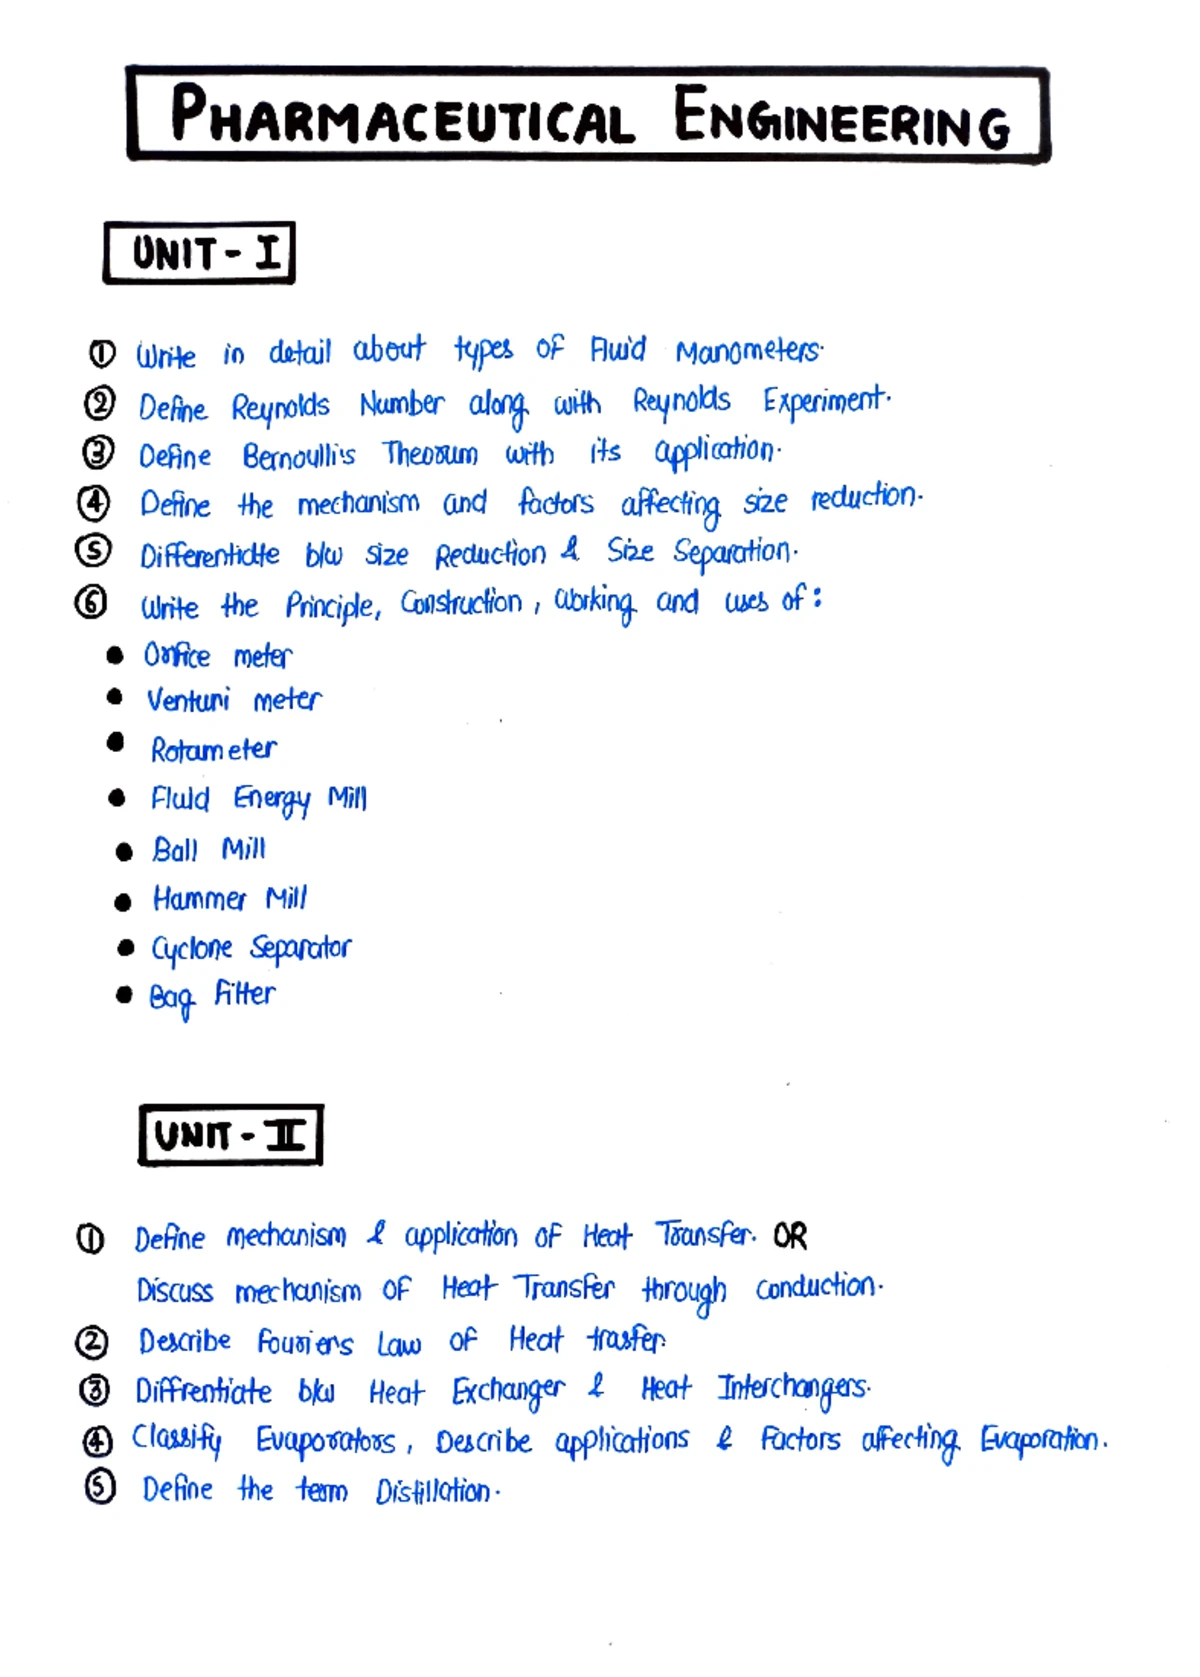 PHARMACEUTICAL ENGINEERING
UNIT - I
① Write in detail about types of Fluid Manometers.
② Define Reynolds Number along with Reynolds Experiment.
③ Define Bernoulli's Theorum with its application.
④ Define the mechanism and factors affecting size reduction.
⑤ Differentiate b/w size Reduction & Size Separation.
⑥ Write the Principle, Construction, Working and uses of :
● Orifice meter
● Venturi meter
● Rotameter
● Fluid Energy Mill
● Ball Mill
● Hammer Mill
● Cyclone Separator
● Bag Filter
UNIT - II
① Define mechanism & application of Heat Transfer. OR
Discuss mechanism of Heat Transfer through conduction.
② Describe Fouriers Law of Heat trasfer.
③ Diffrentiate b/w Heat Exchanger & Heat Interchangers.
④ Classify Evaporators, Describe applications & Factors affecting Evaporation.
⑤ Define the term Distillation.